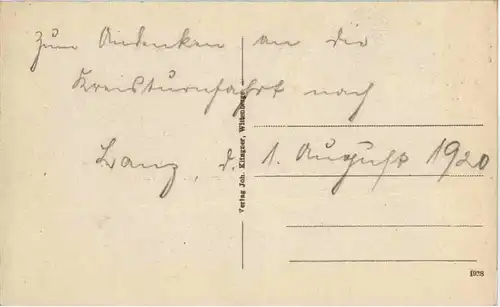 Zum Andenken an die
Kreisturnfahrt nach
Lanz, d. 1. August 1920
Verlag Joh. Klingner, Wittenberge